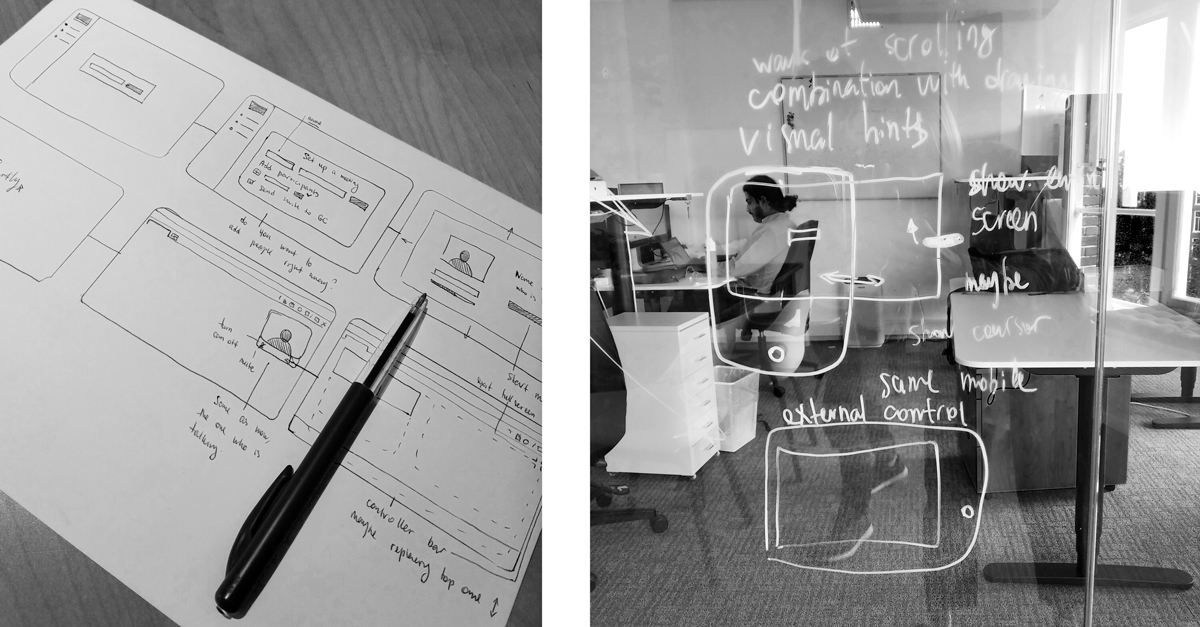 name
Set up a meeting
Add participants
Send invite to GC
do you want to
add people right away?
Name
who is
turn
cam off
mute
Same as now,
the one who is
talking
Start
controller bar
maybe replacing top one
scrolling
combination with drawing
visual hints
show entire
screen
maybe
show coursor
same mobile
external control